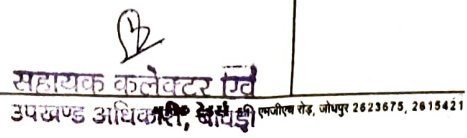 सहायक कलेक्टर एवं
उपखण्ड अधिकारी, बावड़ी एमजीएच रोड़, जोधपुर 2623675, 2615421